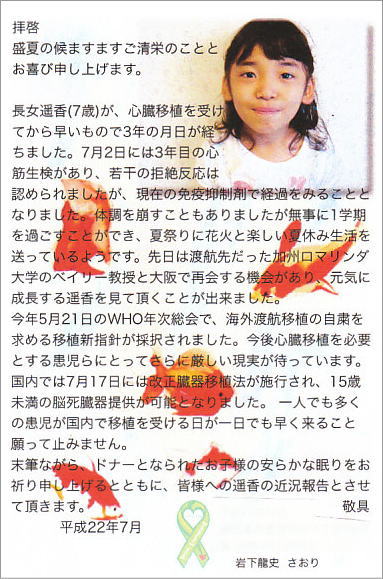 拝啓
盛夏の候ますますご清栄のことと
お喜び申し上げます。
長女遥香(7歳)が、心臓移植を受け
てから早いもので3年の月日が経
ちました。7月2日には3年目の心
筋生検があり、若干の拒絶反応は
認められましたが、現在の免疫抑制剤で経過をみることと
なりました。体調を崩すこともありましたが無事に1学期
を過ごすことができ、夏祭りに花火と楽しい夏休み生活を
送っているようです。先日は渡航先だった加州ロマリンダ
大学のベイリー教授と大阪で再会する機会があり、元気に
成長する遥香を見て頂くことが出来ました。
今年5月21日のWHO年次総会で、海外渡航移植の自粛を
求める移植新指針が採択されました。今後心臓移植を必要
とする患児らにとってさらに厳しい現実が待っています。
国内では7月17日には改正臓器移植法が施行され、15歳
未満の脳死臓器提供が可能となりました。 一人でも多く
の患児が国内で移植を受ける日が一日でも早く来ること
願って止みません。
末筆ながら、ドナーとなられたお子様の安らかな眠りをお
祈り申し上げるとともに、皆様への遥香の近況報告とさせ
て頂きます。 敬具
平成22年7月
岩下龍史 さおり